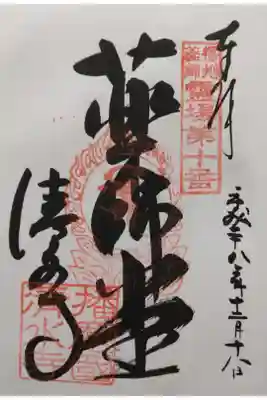 奉拝
播州薬師霊場第十番
平成二十八年十二月十八日
薬師堂
清水寺
播磨國
清水寺